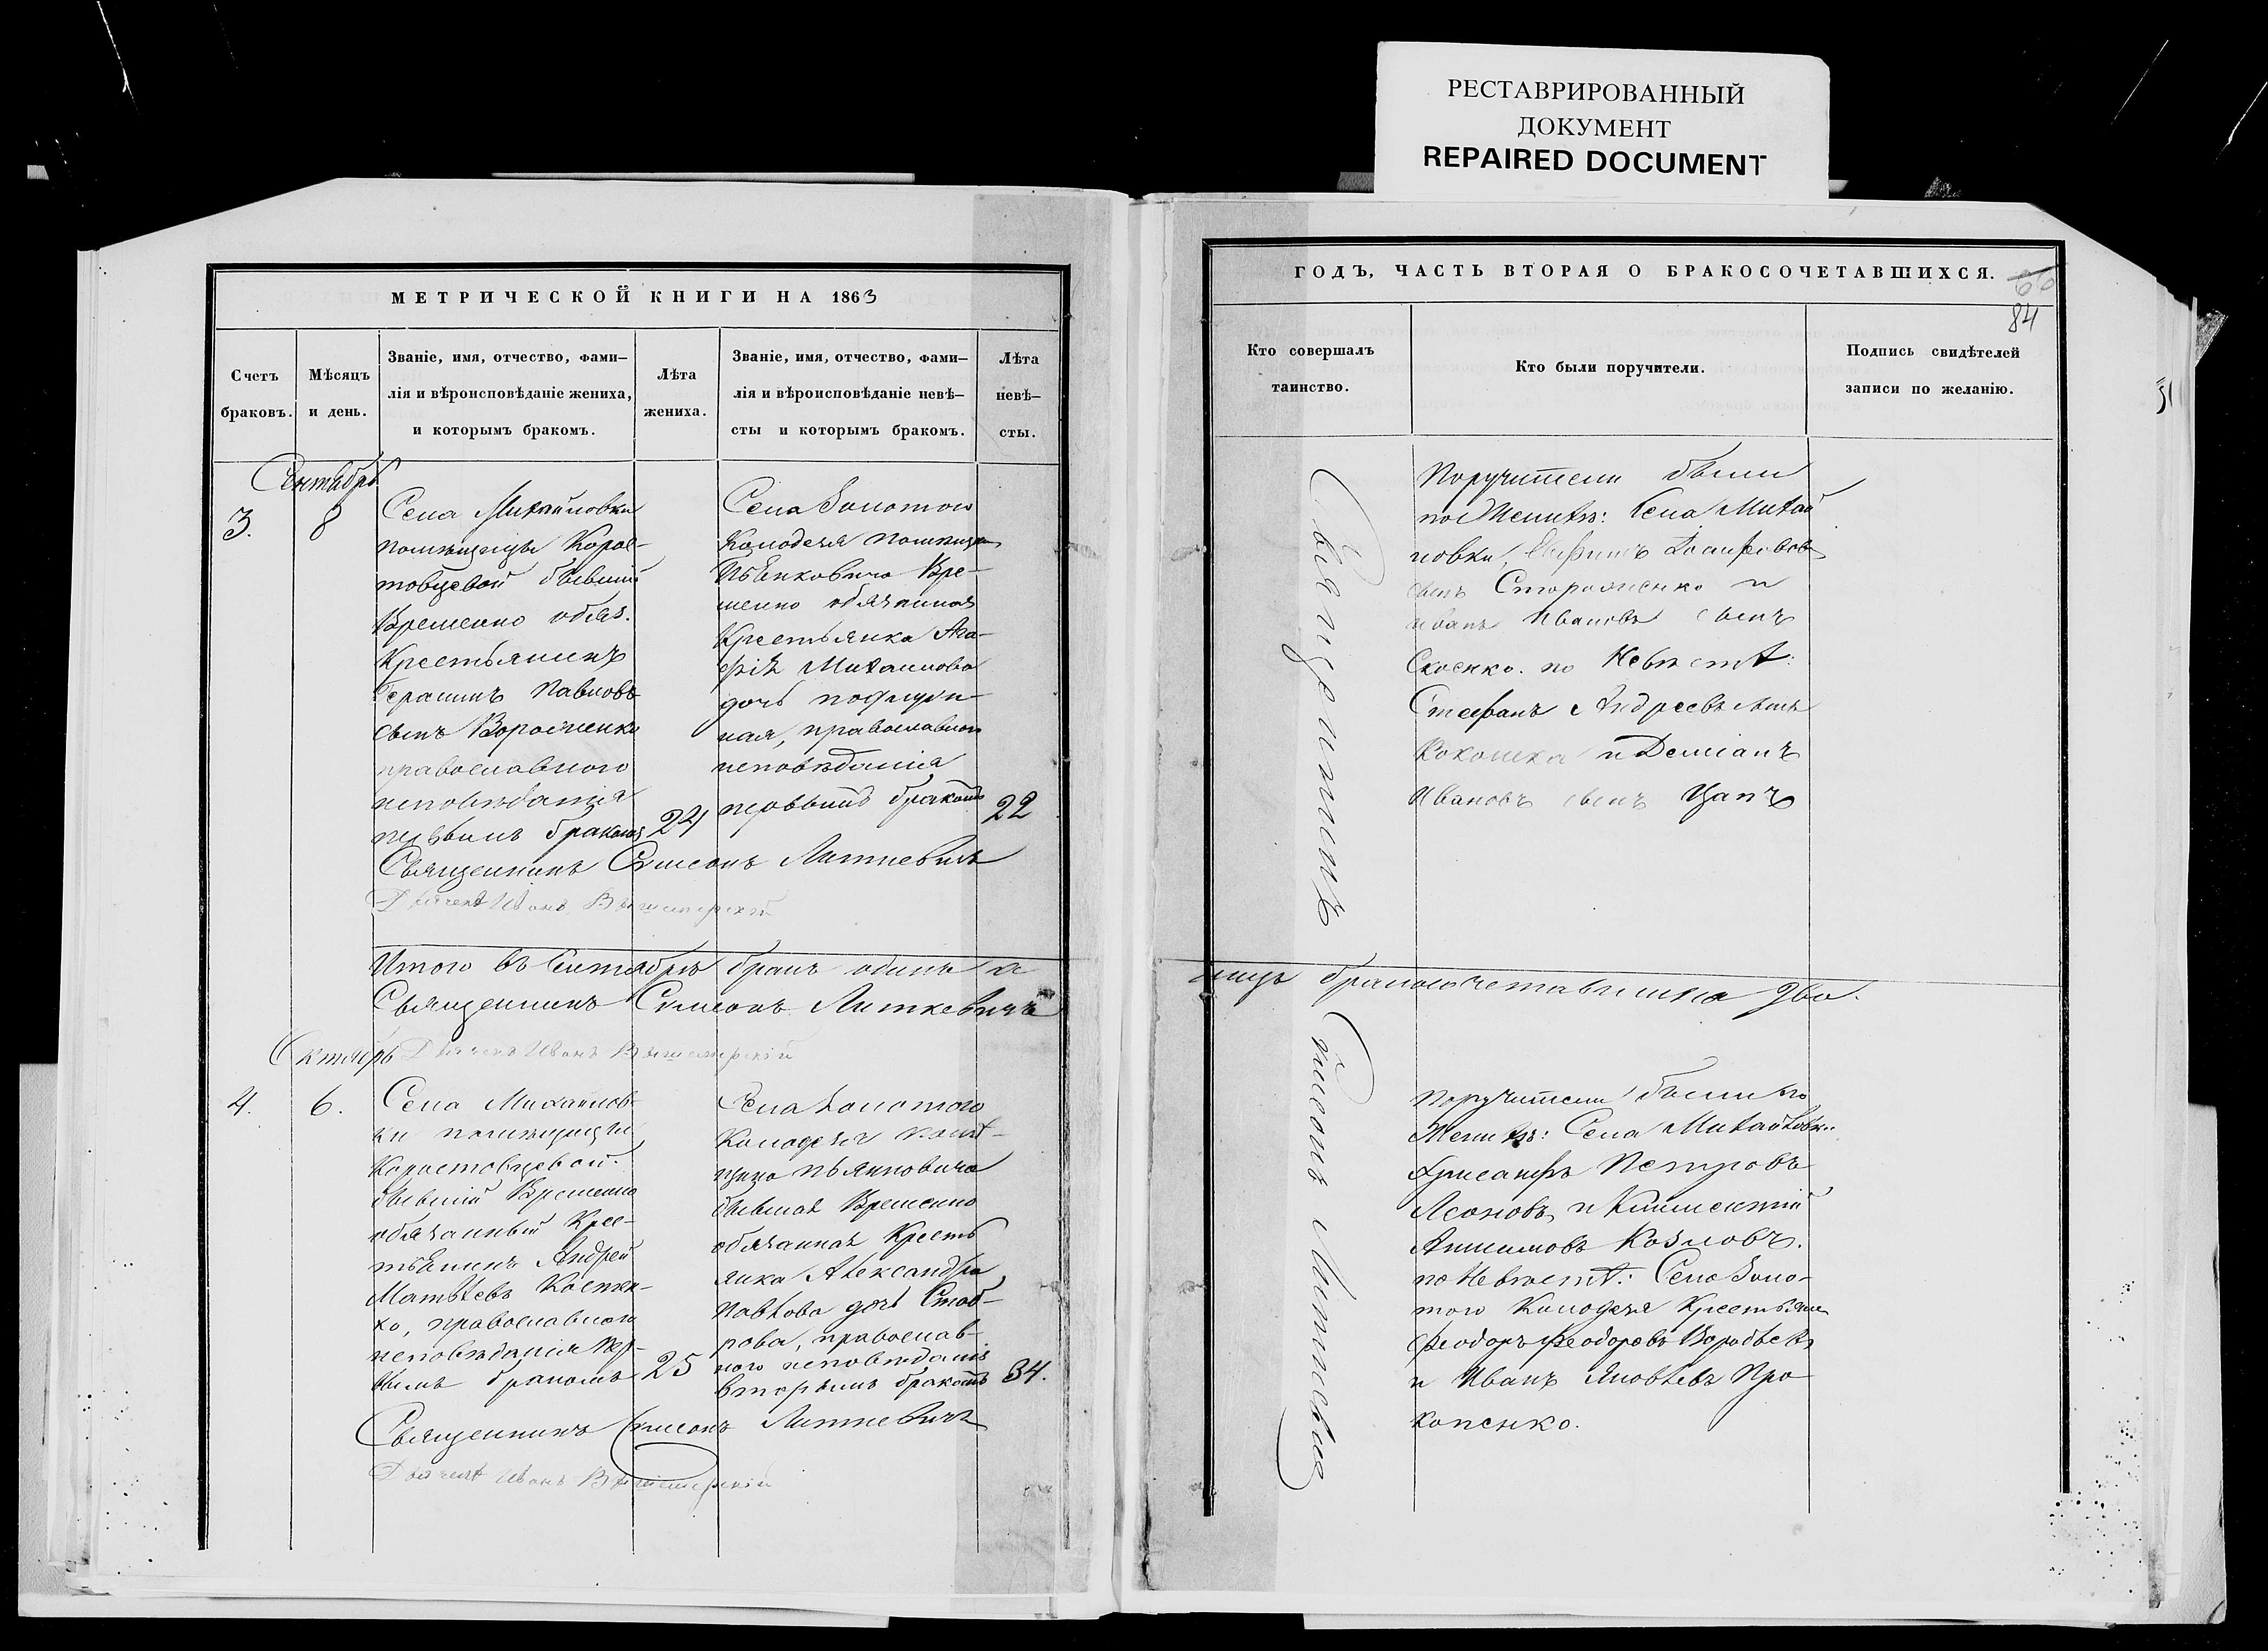 РЕСТАВРИРОВАННЫЙ
ДОКУМЕНТ
REPAIRED DOCUMENT
МЕТРИЧЕСКОЙ КНИГИ НА 1863
Счетъ
браковъ.
Мѣсяцъ
и день.
Званіе, имя, отчество, фами–
лія и вѣроисповѣданіе жениха,
и которымъ бракомъ.
Лѣта
жениха.
Званіе, имя, отчество, фами–
лія и вѣроисповѣданіе невѣ–
сты и которымъ бракомъ.
Лѣта
невѣ–
сты.
Сентябрь
3.
8
Села Михайловки
помѣщицы Корос-
товцевой бывшій
Временно обяз.
Крестьянинъ
Герасимъ Павловъ
сынъ
православного
исповѣданія
первымъ бракомъ
24
Села Золотого
Колодезя помѣщика
Вре-
менно обязанная
Крестьянка Ага-
фія Михаилова
дочь
ная, православного
исповѣданія
первымъ бракомъ
22
Священникъ Симеонъ Литкевичъ
Дьячекъ Иванъ
Итого въ Сентябрѣ бракъ одинъ а
Священникъ Симеонъ Литкевичъ
Дьячекъ Иванъ
Октябрь
4.
6.
Села Михайлов-
ки помѣщицы
Коростовцевой
бывшій Временно
обязанный Крес-
тьянинъ Андрей
Матвѣевъ
ко, православного
исповѣданія пер-
вымъ бракомъ
25
Села Золотого
Колодезя помѣ-
щика
бывшая Временно
обязанная Кресть
янка Александра
Павлова дочь
рова, православ-
ного исповѣданія
вторымъ бракомъ
34.
Священникъ Симеонъ Литкевичъ
Дьячекъ Иванъ
ГОДЪ, ЧАСТЬ ВТОРАЯ О БРАКОСОЧЕТАВШИХСЯ.
84
Кто совершалъ
таинство.
Кто были поручители.
Подпись свидѣтелей
записи по желанію.
Священникъ Симеонъ Литкевичъ
Поручители были
по Женихѣ: Села Михай
ловки,
сынъ Стороженко и
Иванъ Ивановъ сынъ
по Невѣстѣ:
Стефанъ Андреевъ сынъ
Кокошка и Демианъ
Ивановъ сынъ Цапъ
лицъ бракосочетавшихся два.
Поручители были по
Женихѣ: Села Михайловки
Хрисанфъ Петровъ
Леоновъ и Климентий
Козловъ.
по Невѣстѣ: Села Золо-
того Колодезя Крестьяне
Феодоръ Феодоровъ
и Иванъ Яковлевъ Про
копенко.